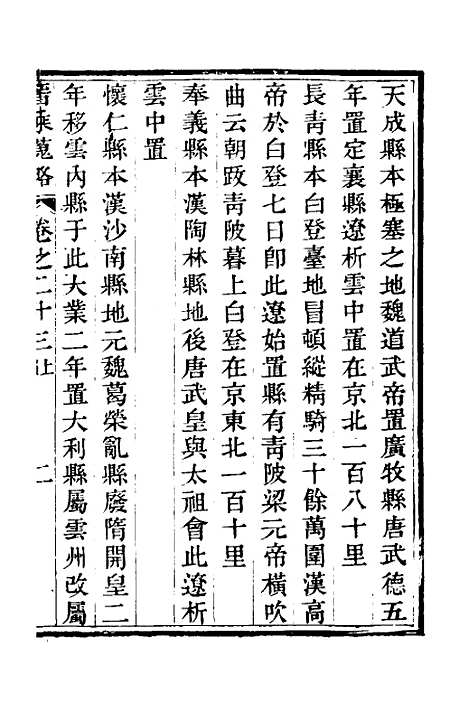 天成縣本極塞之地魏道武帝置廣牧縣唐武德五
年置定襄縣遼析雲中置在京北一百八十里
長靑縣本白登臺地冒頓縱精騎三十餘萬圍漢高
帝於白登七日卽此遼始置縣有靑陂梁元帝橫吹
曲云朝跂靑陂暮上白登在京東北一百十里
奉義縣本漢陶林縣地後唐武皇與太祖會此遼析
雲中置
懷仁縣本漢沙南縣地元魏葛榮亂縣廢隋開皇二
年移雲內縣于此大業二年置大利縣屬雲州改屬
晉乘蒐略 卷之二十三上 二